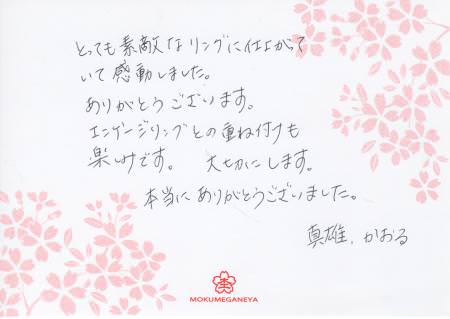 とっても素敵なリングに仕上がって
いて感動しました。
ありがとうございます。
エンゲージリングとの重ね付けも
楽しみです。 大切にします。
本当にありがとうございました。
真雄、かおる
杢
MOKUMEGANEYA